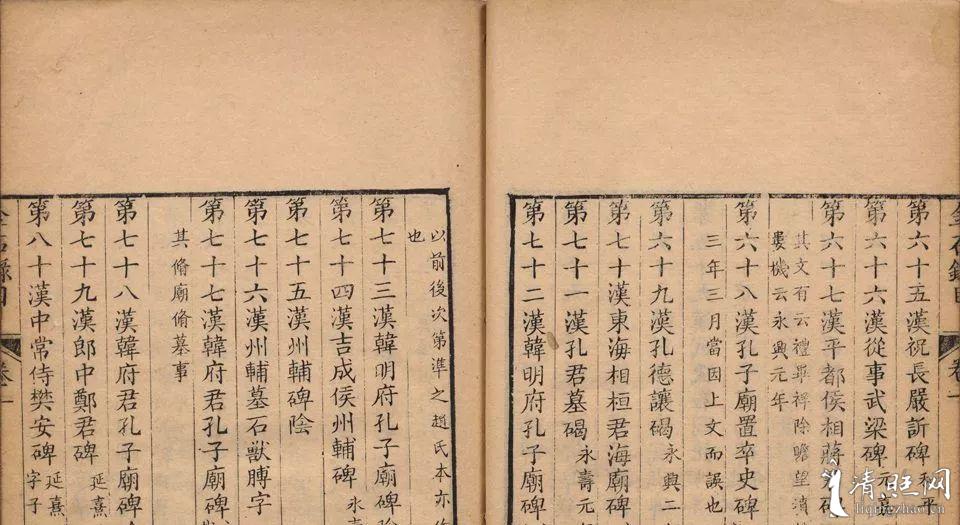 金石錄目
卷一
第六十五漢祝長嚴訢碑和平
第六十六漢從事武梁碑元嘉
第六十七漢平都侯相蔣君碑
其文有云禮畢祥除瞻望墳
婁機云永興元年
第六十八漢孔子廟置卒史碑
三年三月當因上文而誤也
第六十九漢孔德讓碣永興二
第七十漢東海相桓君海廟碑
第七十一漢孔君墓碣永壽元
第七十二漢韓明府孔子廟碑
以前後次第準之趙氏本亦
也
第七十三漢韓明府孔子廟碑陰
第七十四漢吉成侯州輔碑永壽
第七十五漢州輔碑陰
第七十六漢州輔墓石獸膊字
第七十七漢韓府君孔子廟碑
其脩廟脩墓事
第七十八漢韓府君孔子廟碑
第七十九漢郎中鄭君碑延熹
第八十漢中常侍樊安碑延熹字子
金石錄目
卷一
清照网
liqingzhao.cn